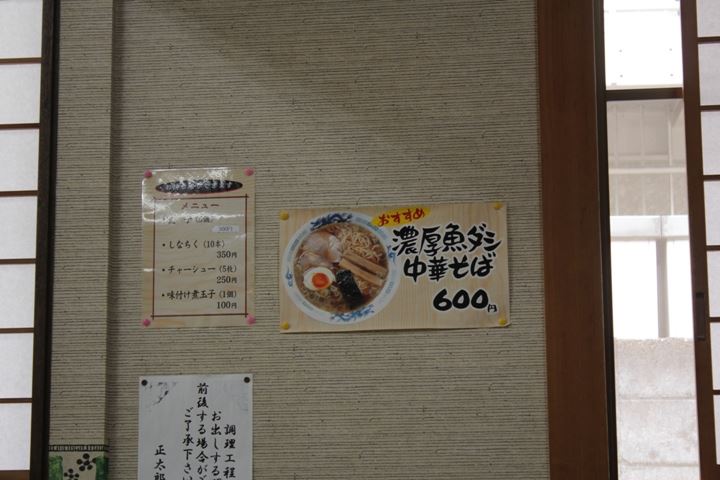 メニュー
子（5個）
300円
・しなちく（10本）
350円
・チャーシュー（5枚）
250円
・味付け煮玉子（1個）
100円
おすすめ
濃厚魚ダシ
中華そば
600円
調理工程
お出しする
前後する場合が
ご了承下さい
正太郎